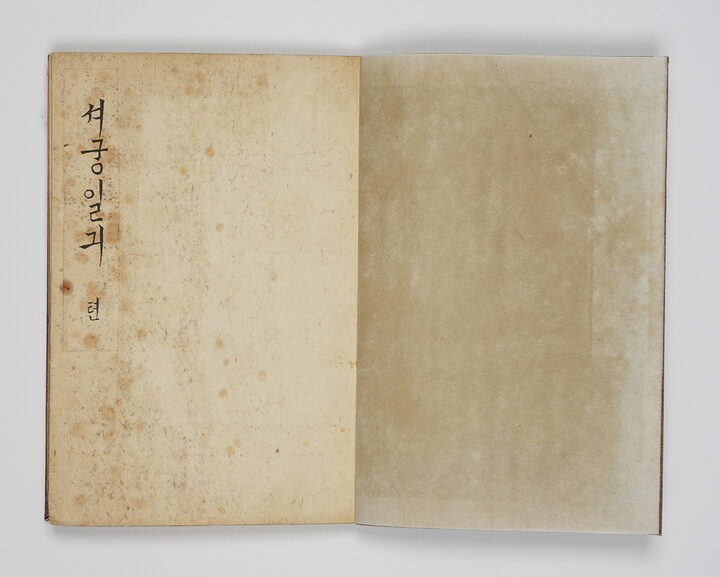 셔궁일긔
텬